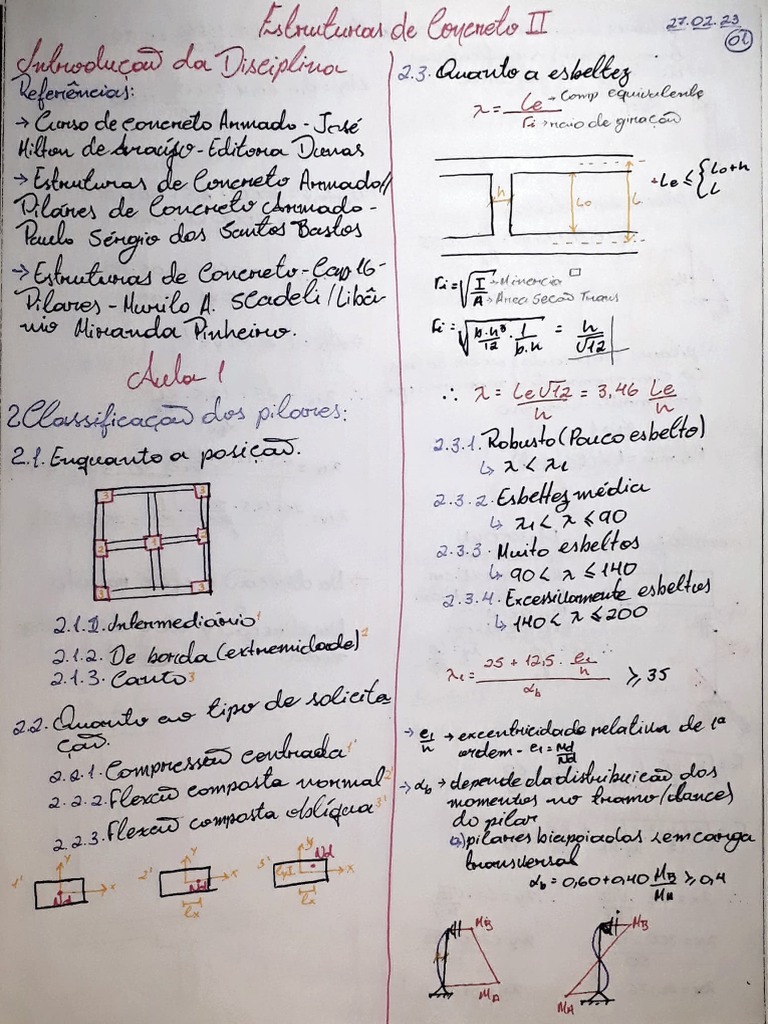 Estruturas de Concreto II
27.02.23
01
Introdução da Disciplina
Referências:
→ Curso de concreto Armado - José
Milton de Araújo - Editora Dunas
→ Estruturas de Concreto Armado//
Pilares de Concreto Armado -
Paulo Sérgio dos Santos Bastos
→ Estruturas de Concreto - Cap 16 -
Pilares - Murilo A. Scadeli / Libâ
nio Miranda Pinheiro.
Aula 1
2 Classificação dos pilares:
2.1. Enquanto a posição.
3 3
2 1 2
3 2 3
2.1.1. Intermediário 1
2.1.2. De borda (extremidade) 2
2.1.3. Canto 3
2.2. Quanto ao tipo de solicita
ção.
2.2.1. Compressão centrada 1'
2.2.2. Flexão composta normal 2'
2.2.3. Flexão composta oblíqua 3'
1' y x Nd
2' y x Nd ex
3' y x Nd ey ex
2.3. Quanto a esbeltez
λ = le → comp equivalente
ri → raio de giração
h lo l
→ le ≤ { lo+h
l
ri = √ I → M inercia
A → Área Secão Trans
ri = √ b.h³/12 . 1/b.h = h/√12
∴ λ = le√12/h = 3,46 le/h
2.3.1. Robusto (Pouco esbelto)
↳ λ < λ1
2.3.2. Esbeltez média
↳ λ1 < λ ≤ 90
2.3.3. Muito esbeltos
↳ 90 < λ ≤ 140
2.3.4. Excessivamente esbeltos
↳ 140 < λ ≤ 200
λ1 = 25 + 12,5 . e1/h
αb ≥ 35
→ e1/h → excentricidade relativa de 1ª
ordem - e1 = Md/Nd
→ αb → depende da distribuicão dos
momentos no tramo/(lances)
do pilar
a) pilares biapoiados sem carga
transversal
αb = 0,60 + 0,40 MB/MA ≥ 0,4
MB MA
MB MA